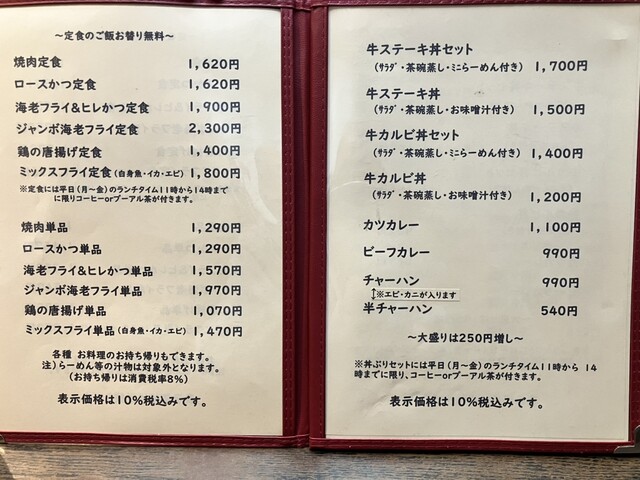 ～定食のご飯お替り無料～
焼肉定食 1,620円
ロースかつ定食 1,620円
海老フライ&ヒレかつ定食 1,900円
ジャンボ海老フライ定食 2,300円
鶏の唐揚げ定食 1,400円
ミックスフライ定食(白身魚・イカ・エビ) 1,800円
※定食には平日(月～金)のランチタイム11時から14時まで
に限りコーヒーorプーアル茶が付きます。
焼肉単品 1,290円
ロースかつ単品 1,290円
海老フライ&ヒレかつ単品 1,570円
ジャンボ海老フライ単品 1,970円
鶏の唐揚げ単品 1,070円
ミックスフライ単品(白身魚・イカ・エビ) 1,470円
各種 お料理のお持ち帰りもできます。
注)らーめん等の汁物は対象外となります。
(お持ち帰りは消費税率8%)
表示価格は10%税込みです。
牛ステーキ丼セット
(サラダ・茶碗蒸し・ミニらーめん付き) 1,700円
牛ステーキ丼
(サラダ・茶碗蒸し・お味噌汁付き) 1,500円
牛カルビ丼セット
(サラダ・茶碗蒸し・ミニらーめん付き) 1,400円
牛カルビ丼
(サラダ・茶碗蒸し・お味噌汁付き) 1,200円
カツカレー 1,100円
ビーフカレー 990円
チャーハン 990円
↕※エビ・カニが入ります
半チャーハン 540円
～大盛りは250円増し～
※丼ぶりセットには平日(月～金)のランチタイム11時から 14
時までに限り、コーヒーorプーアル茶が付きます。
表示価格は10%税込みです。